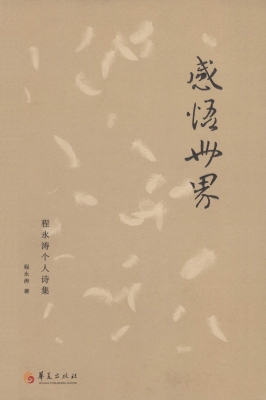 感悟世界
程永涛个人诗集
程永涛 著
华夏出版社